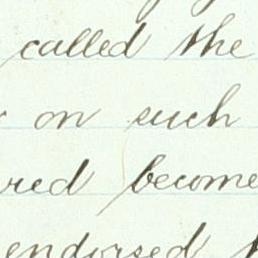 called the
on such
red become
endorsed